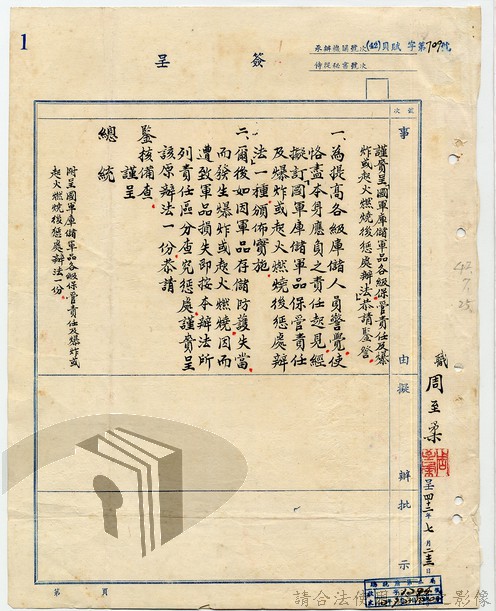 1
承辦機關號次(42)貝賦 字第709號
侍從秘書號次
簽呈
號次
事由
擬辦
批示
謹賫呈「國軍庫儲軍品各級保管責任及爆
炸或起火燃燒後惩處辦法」恭請鑒詧
一、為提高各級庫儲人員警覺使
恪盡本身應負之責任起見經
擬訂國軍庫儲軍品保管責任
及爆炸或起火燃燒後惩處辦
法一種頒佈實施
二、爾後如因軍品存儲防護失當
而發生爆炸或起火燃燒因而
遭致軍品損失即按本辦法所
列責任區分查究惩處謹賫呈
該原辦法一份恭請
鑒核備查
謹呈
總統
附呈國軍庫儲軍品各級保管責任及爆炸或
起火燃燒後惩處辦法一份
職
周至柔
呈四十二年七月二十三日
42.
7.
25.
第 頁
請合法使用
影像